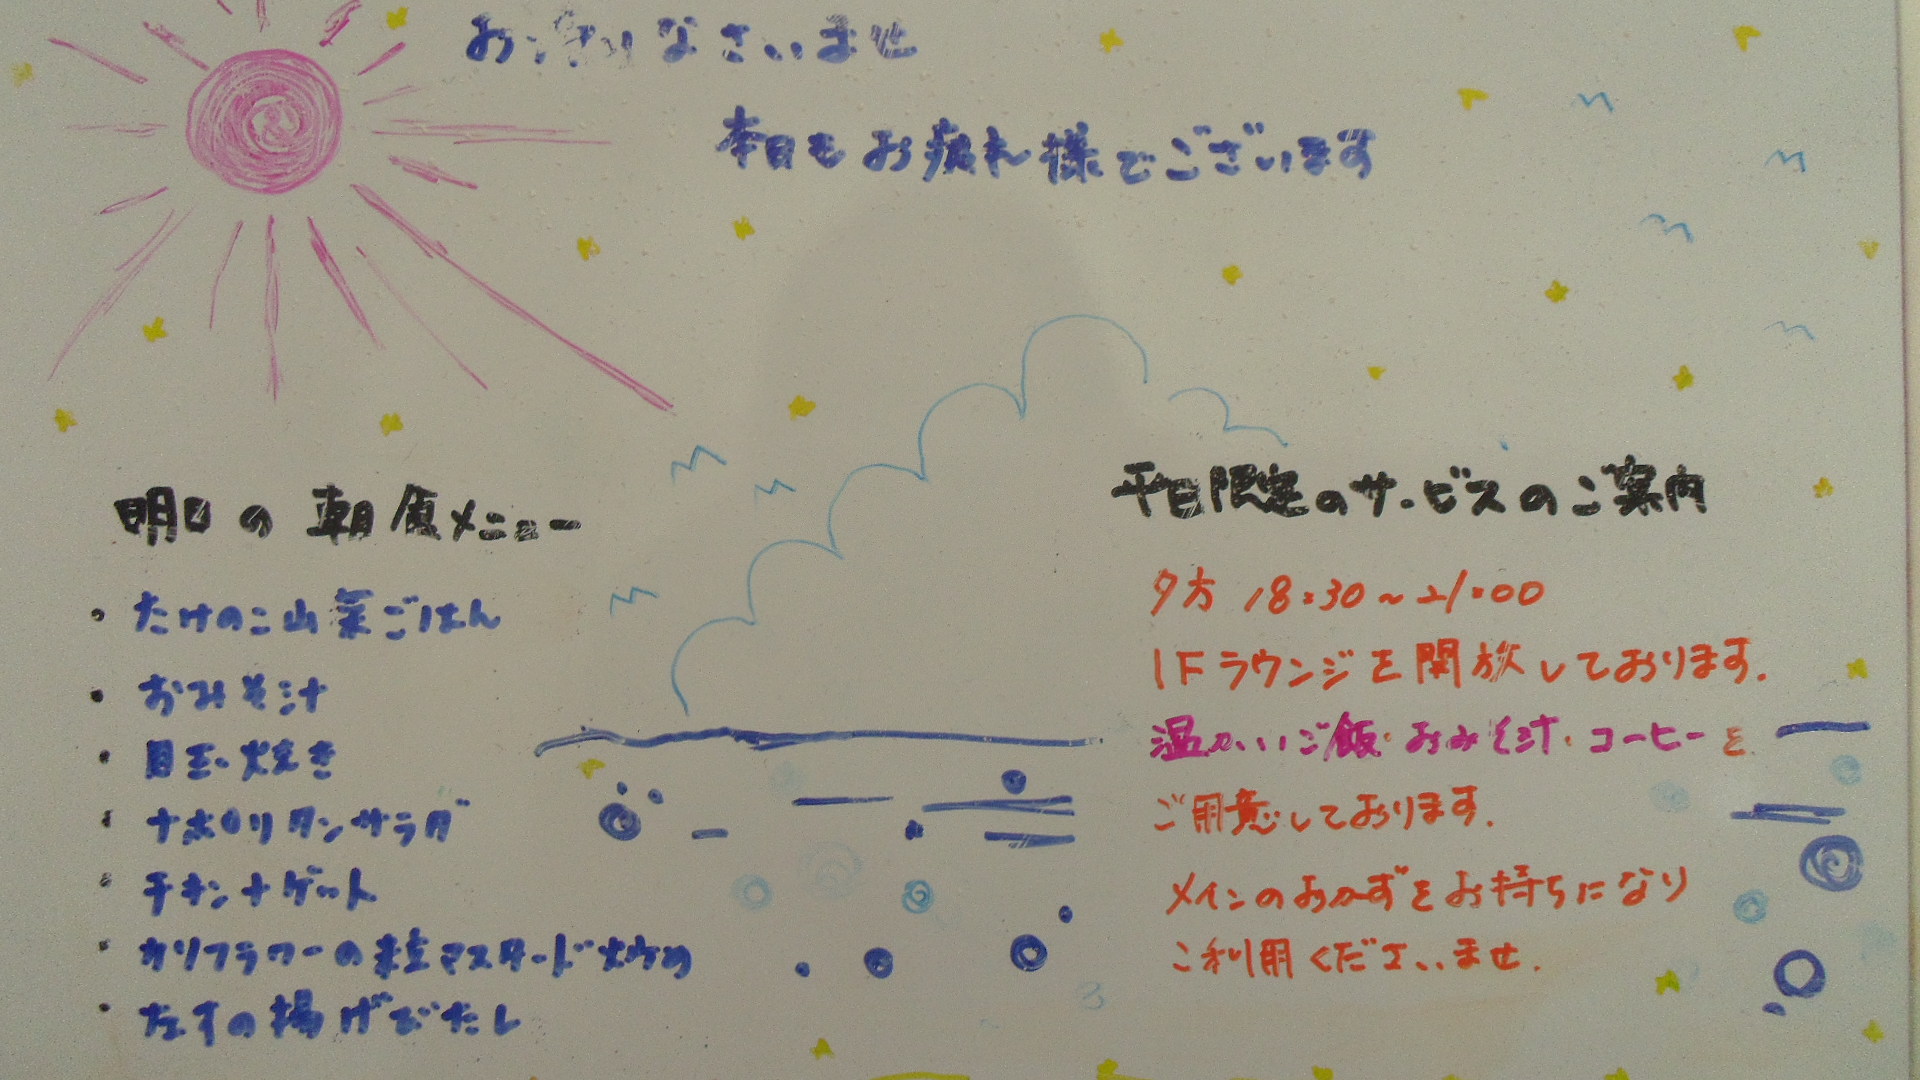 お帰りなさいませ
本日もお疲れ様でございます
明日の朝食メニュー
・たけのこ山菜ごはん
・おみそ汁
・目玉焼き
・ナポリタンサラダ
・チキンナゲット
・カリフラワーの粒マスタード炒め
・なすの揚げびたし
平日限定のサービスのご案内
夕方 18:30~21:00
1Fラウンジを開放しております.
温かいご飯・おみそ汁・コーヒーを
ご用意しております.
メインのおかずをお持ちになり
ご利用くださいませ.